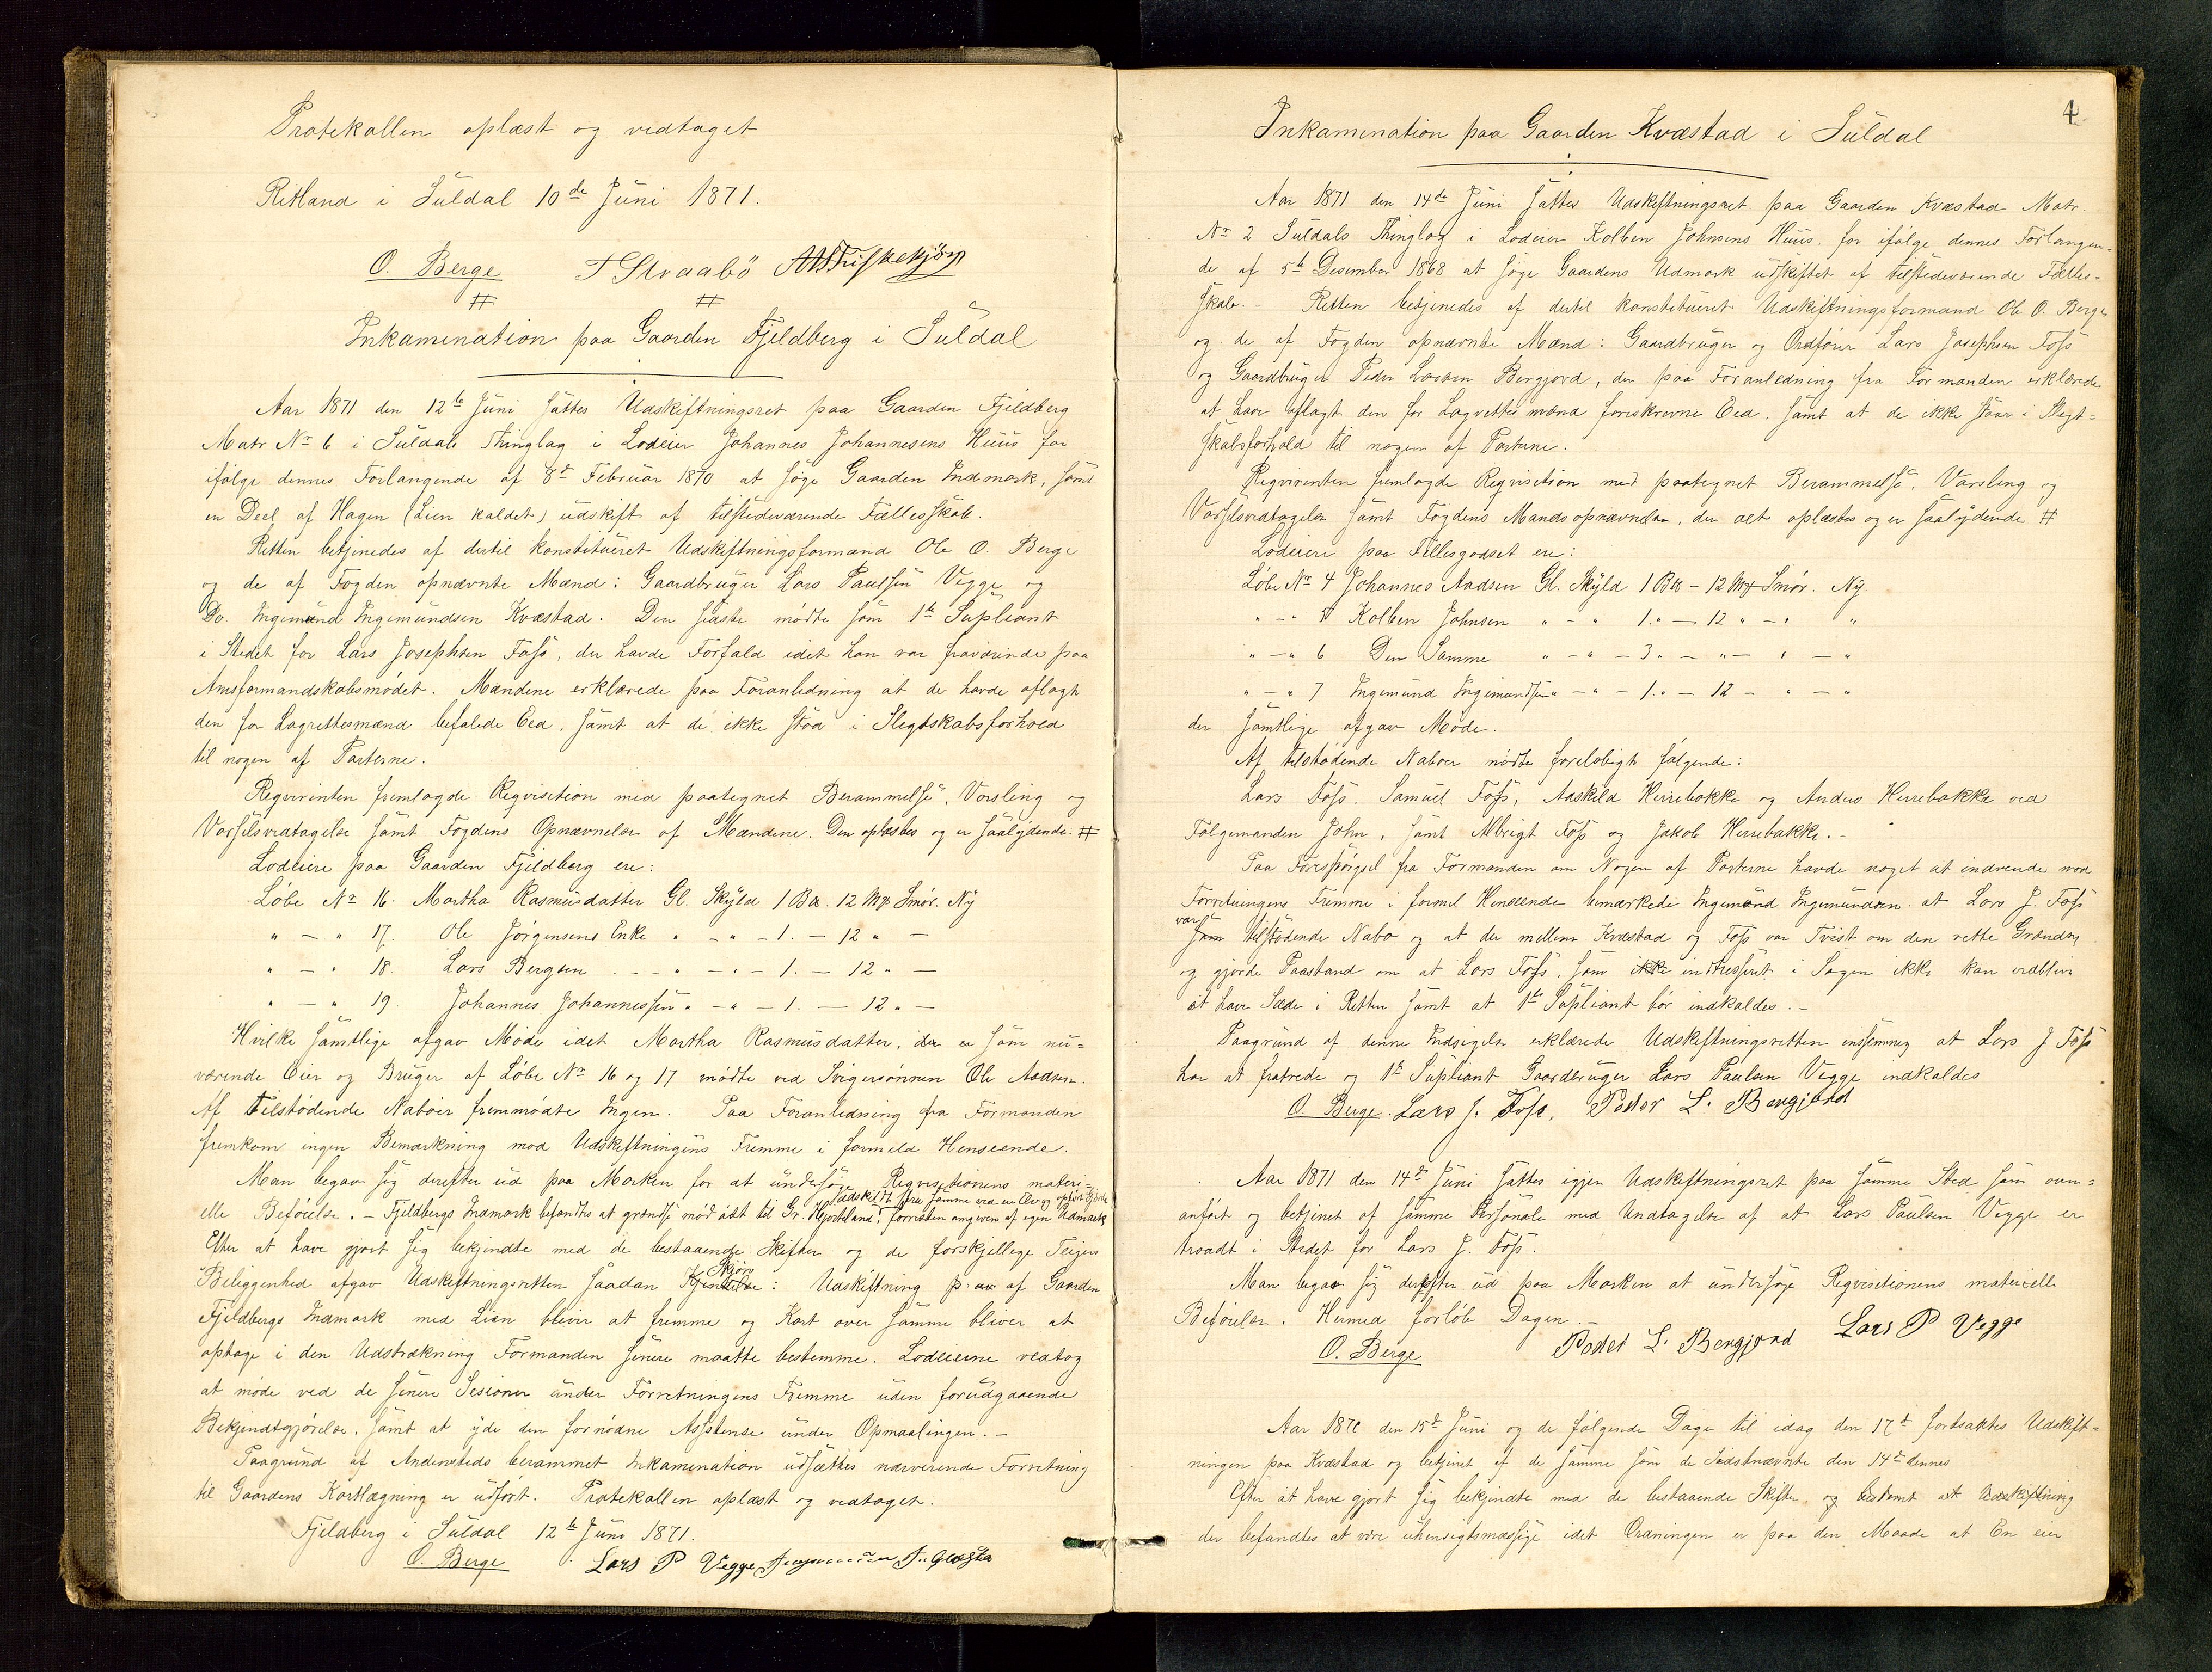 Protekollen oplæst og vedtaget
Ritland i Suldal 10de Juni 1871.
O. Berge T Straabö
# #
Inkamination paa Gaarden Fjeldberg i Suldal
Aar 1871 den 12te Juni sattes Udskiftningsret paa Gaarden Fjeldberg
Matr No 6 i Suldals Thinglag i Lodeier Johannes Johannesens Huus for
ifølge dennes Forlangende af 8de Februar 1870 at søge Gaarden Indmark, samt
en Deel af Hagen (Lien kaldet) udskift af tilstedeværende Fællesskab.
Retten betjenedes af dertil konstitueret Udskiftningsformand Ole O. Berge
og de af Fogden opnævnte Mænd: Gaardbruger Lars Paulsen Vegge og
Do. Ingemund Ingemundsen Kvæstad. Den sidste mødte som 1te Supleant
i Stedet for Lars Josephsen Foss, der havde Forfald idet han var fraværende paa
Amsformandskabsmødet. Mændene erklærede paa Foranledning at de havde aflagt
den for Lagrettesmænd befalede Eed, samt at de ikke stod i Slegtskabsforhold
til nogen af Parterne.
Reqvirenten fremlagde Reqvisition med paategnet Berammelse, Varsling og
Varselsvedtagelse samt Fogdens Opnævnelse af Mændene. Den oplæstes og er saalydende. #
Lodeiere paa Gaarden Fjeldberg ere:
Løbe No 16. Martha Rasmusdatter Gl. Skyld 1 Bd. 12 Mp Smør. Ny
" – " 17. Ole Jørgensens Enke " – " – 1. – 12 " –
" – " 18. Lars Bergsen – – " – " – 1. – 12 " –
" – " 19. Johannes Johannessen " – " – 1. – 12 " –
Hvilke samtlige afgav Møde idet Martha Rasmusdatter, der er som nu=
værende Eier og Bruger af Løbe No 16 og 17 mødte ved Svigersønnen Ole Aadsen.
Af tilstødende Naboer fremmødte Ingen. Paa Foranledning fra Formanden
fremkom ingen Bemærkning mod Udskiftningens Fremme i formeld Henseende.
Man begav sig derefter ud paa Marken for at undersøge Reqvisitionens materi=
adskildt fra samme ved en Elv og opført Gjerde
elle Beføielse. – Fjeldbergs Indmark befandtes at grændse mod øst til Gr. Hjorteland, forresten omgiven af egen Udmark
Efter at have gjort sig bekjendte med de bestaaende Skifter og de forskjellige Teigers
Skjøn
Beliggenhed afgav Udskiftningsretten saadan Kjendelse: Udskiftning af Gaarden
Fjeldbergs Indmark med Lien bliver at fremme og Kart over samme bliver at
optage i den Udstrækning Formanden senere maatte bestemme. Lodeierne vedtog
at møde ved de senere Sesioner under Forretningens Fremme uden forudgaaende
Bekjendtgjørelse, samt at yde den fornødne Assistense under Opmaalingen. –
Paagrund af Andensteds berammet Inkamination udsættes nærverende Forretning
til Gaardens Kortlægning er udført. Protekollen oplæst og vedtaget.
Fjeldberg i Suldal 12te Juni 1871.
O. Berge Lars P Vegge
4
Inkamination paa Gaarden Kvæstad i Suldal
Aar 1871 den 14de Juni sattes Udskiftningsret paa Gaarden Kvæstad Matr.
No 2 Suldals Thinglag i Lodeier Kolben Johnsens Huus for ifølge dennes Forlangen=
de af 5te Desember 1868 at søge Gaardens Udmark udskiftet af tilstedeværende Fælles=
skab. – Retten betjenedes af dertil konstitueret Udskiftningsformand Ole O. Berge
og de af Fogden opnævnte Mænd: Gaardbruger og Ordfører Lars Josephsen Foss
og Gaardbruger Peder Larsen Bergjord, der paa Foranledning fra Formanden erklærede
at have aflagt den for Lagrettesmænd foreskrevne Eed, samt at de ikke staar i Slegt=
skabsforhold til nogen af Parterne.
Reqvirenten fremlagde Reqvisition med paategnet Berammelse, Varsling og
Varselsvedtagelse samt Fogdens Mandsopnævnelse, der alt oplæstes og er saalydende #
Lodeiere paa Fellesgodset ere:
Løbe No 4 Johannes Aadsen Gl. Skyld 1 Bd – 12 Mp Smør. Ny.
" – " 5 Kolben Johnsen " – " 1. " – 12 " – " "
" – " 6 Den Samme " – " – 3 " – " – " – "
" – " 7 Ingemund Ingemundsen " – " – 1. " – 12 – " – "
der samtlige afgav Møde.
Af tilstødende Naboer mødte foreløbigt følgende:
Lars Foss. Samuel Foss, Aaskild Herrebakke og Anders Herrebakke ved
Følgemanden John, samt Albrigt Foss og Jakob Herrebakke. –
Paa Forespørgsel fra Formanden om Nogen af Parterne havde noget at indvende mod
Forretningens Fremme i formel Henseende bemærkede Ingemund Ingemundsen at Lars J. Foss
var
som tilstødende Nabo og at der mellem Kvæstad og Foss var Tvist om den rette Grændse
og gjorde Paastand om at Lars Foss, som ikke intresseret i Sagen ikke kan vedblive
at have Sæde i Retten samt at 1te Supleant bør indkaldes. –
Paagrund af denne Indsigelse erklærede Udskiftningsretten enstemmig at Lars J Foss
har at fratrede og 1te Supleant Gaardbruger Lars Paulsen Vegge indkaldes
O. Berge. Lars J. Foss, Peder L. Bergjord
Aar 1871 den 14de Juni sattes igjen Udskiftningsret paa samme Sted som oven=
anført og betjenet af samme Personale med Undtagelse af at Lars Paulsen Vegge er
traadt i Stedet for Lars J. Foss.
Man begav sig derefter ud paa Marken at undersøge Reqvisitionens materielle
Beføielse. Hermed forløb Dagen. –
O. Berge Peder L. Bergjord Lars P Vegge
Aar 1871 den 15de Juni og de følgende Dage til idag den 17de fortsattes Udskift=
ningen paa Kvæstad og betjenet af de samme som de Sidstnævnte den 14de dennes
Efter at have gjort sig bekjendte med de bestaaende Skifter, og bestemt at Udskiftning
der befandtes at være uhensigtsmæssige idet Ordningen er paa den Maade at En eier